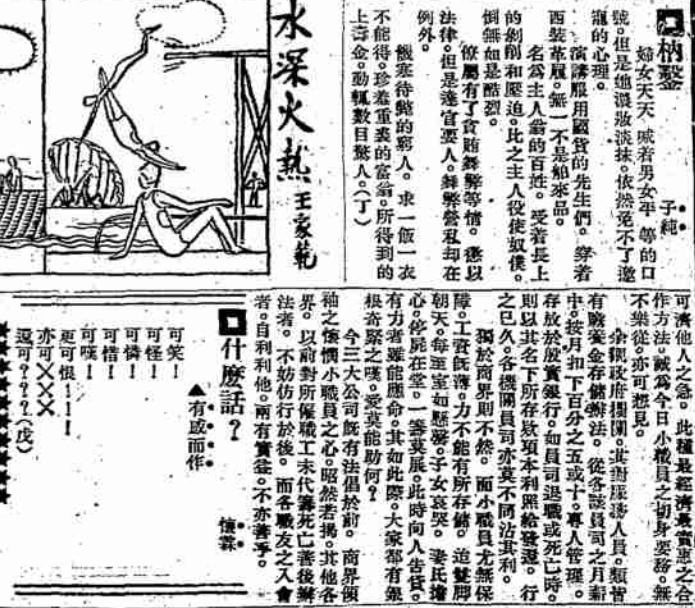 枘鑿
子純
婦女天天 喊着男女平 等的口
號。但是她濃妝淡抹。依然免不了邀
寵的心理。
演講服用國貨的先生們。穿着
西裝革履。無一不是舶來品。
名爲主人翁的百姓。受着長上
的剝削和壓迫。比之主人役使奴僕。
倒無如是酷烈。
僚屬有了貪賄舞弊等情。懲以
法律。但是達官要人。舞弊營私却在
例外。
饑寒待斃的窮人。求一飯一衣
不能得。珍羞重裘的富翁。所得到的
上壽金。動輒數目驚人。(丁)
水深火熱
王家範
可濟他人之急。此種最經濟最實惠之合
作方法。誠爲今日小職員之切身要務。無
不樂從。亦可想見。
余觀政府機關。其對服務人員。類皆
有贍養金存儲辦法。從各該員司之月薪
中。按月扣下百分之五或十。專人管理。
存放於殷實銀行。如員司退職或死亡時。
則以其名下所存欵項本利照給發還。行
之已久。各機關員司亦莫不同沾其利。
獨於商界則不然。而小職員尤無保
障。工資旣薄。力不能有所存儲。迨雙脚
朝天。每至室如懸磬。子女哀哭。妻氏擔
心。停屍在堂。一籌莫展。此時向人告貸。
有力者雖能應命。其如此際。大家都有銀
根奇緊之嘆。愛莫能助何?
今三大公司旣有法倡於前。商界領
袖之憐憫小職員之心。昭然若揭。其他各
界。以前對所僱職工未代籌死亡善後辦
法者。不妨仿行於後。而各職友之入會
者。自利利他。兩有實益。不亦善乎。
什麽話?
▲有感而作
懷霖
可笑!
可怪!
可憐!
可惜!
可嘆!
更可恨!!!!
亦可×××
還可???(戊)